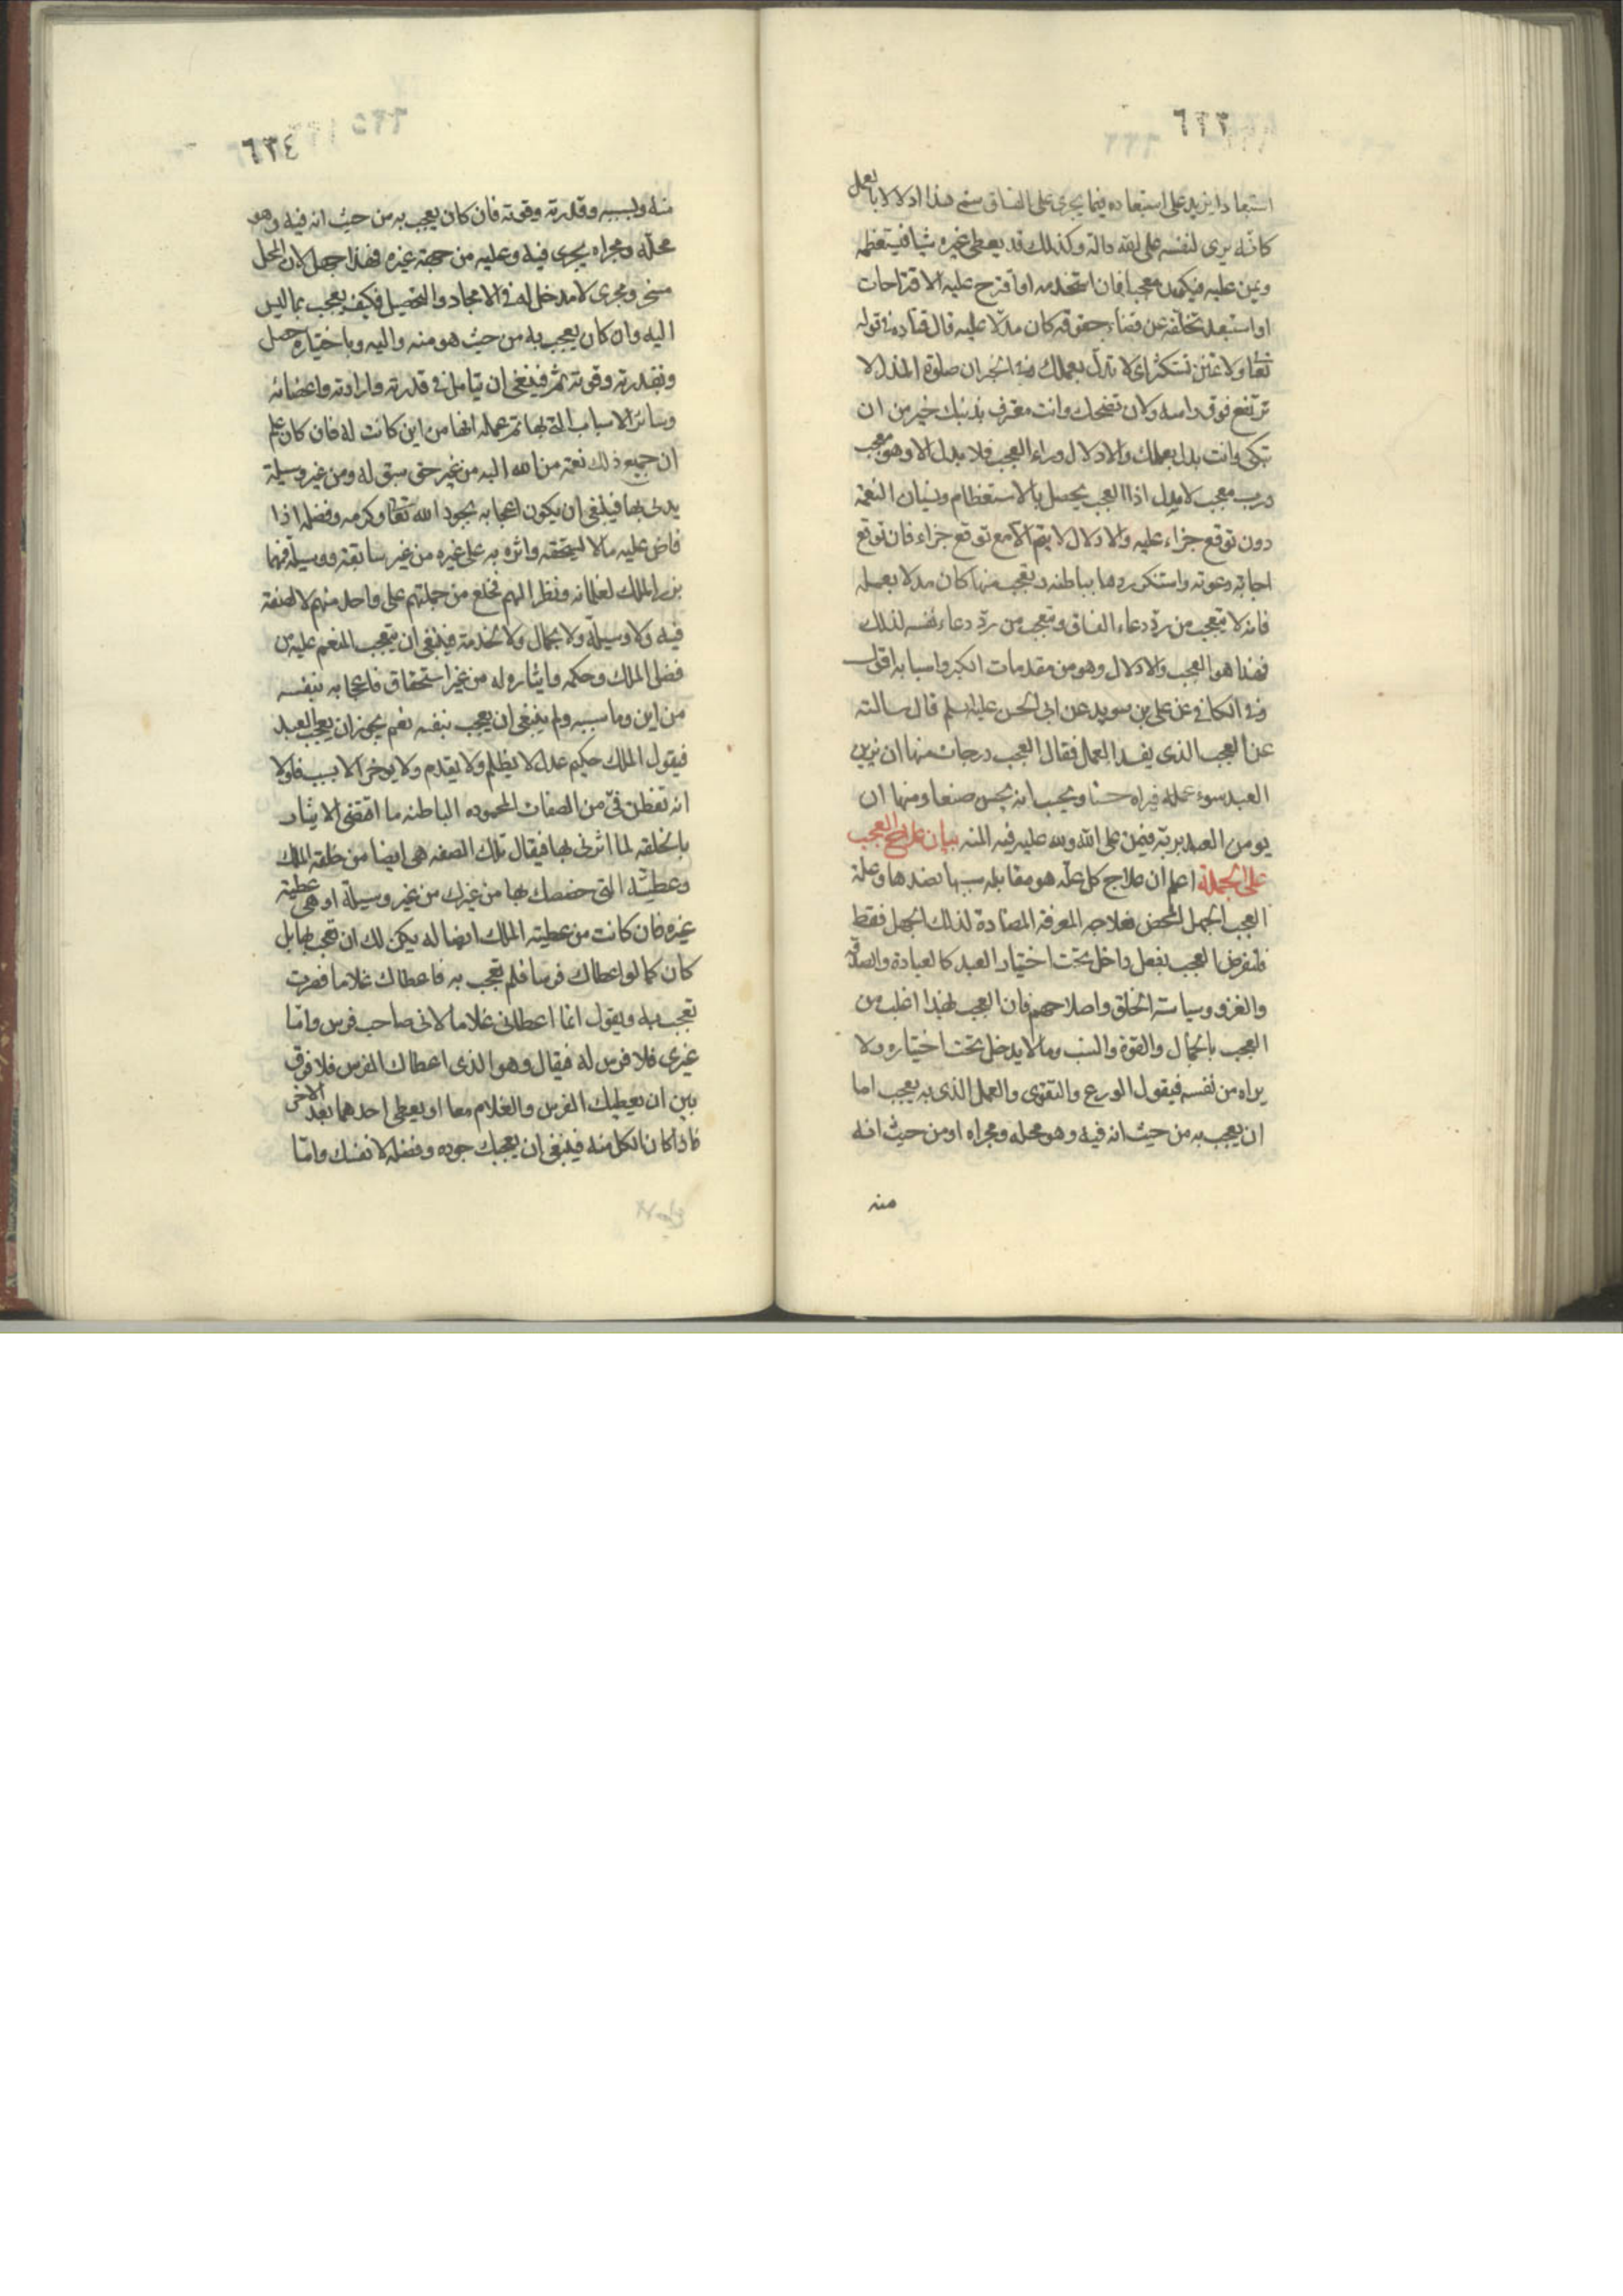 ٦٣٣
استبعادا يزيد على استبعاده فيما يجرى على الفساق سمى هذا ادلالا بالعمل
كانه يرى لنفسه على الله دالة وكذلك قد يعطى غيره شيئا فيستعظمه
ويمن عليه فيكون معجبا فان استخدمه او اقترح عليه الاقتراحات
او استبعد تخلفه عن قضاء حقوقه كان مدلا عليه قال قتادة فى قوله
تعا ولا تمنن تستكثر اى لا تدل بعملك وفى الخبر ان صلوة المدل لا
ترتفع فوق راسه ولان تضحك وانت معترف بذنبك خير من ان
تبكى وانت مدل بعملك والادلال وراء العجب فلا مدل الا وهو معجب
ورب معجب لا يدل اذ العجب يحصل بالاستعظام ونسيان النعمة
دون توقع جزاء عليه والادلال لا يتم الا مع توقع جزاء فان توقع
اجابة دعوته واستنكر ردها بباطنه وتعجب منها كان مدلا بعمله
فانه لا يتعجب من رد دعاء الفساق ويتعجب من رد دعاء نفسه لذلك
فهذا هو العجب والادلال وهو من مقدمات الكبر واسبابه اقول
وفى الكافى عن على بن سويد عن ابى الحسن عليه السلم قال سالته
عن العجب الذى يفسد العمل فقال العجب درجات منها ان يزين
العبد سوء عمله فيراه حسنا ويحسب انه يحسن صنعا ومنها ان
يومن العبد بربه فيمن على الله ولله عليه فيه المنه بيان علاج العجب
على الجملة اعلم ان علاج كل علة هو مقابلة سببها بضدها وعلة
العجب الجهل المحض فعلاجه المعرفة المضادة لذلك الجهل فقط
فلنفرض العجب بفعل داخل تحت اختيار العبد كالعبادة والصدقة
والغزو وسياسة الخلق واصلاحهم فان العجب بهذا اغلب من
العجب بالجمال والقوة والنسب وما لا يدخل تحت اختياره ولا
يراه من نفسه فيقول الورع والتقوى والعمل الذى به يعجب اما
ان يعجب به من حيث انه فيه وهو محله ومجراه او من حيث انه
منه
٦٣٤
منه وبسببه وقدرته وقوته فان كان يعجب به من حيث انه فيه وهو
محله ومجراه يجرى فيه وعليه من جهة غيره فهذا جهل لان المحل
مسخر ومجرى لا مدخل له فى الايجاد والتحصيل فكيف يعجب بما ليس
اليه وان كان يعجب به من حيث هو منه واليه وباختياره حصل
وبقدرته وقوته تم فينبغى ان يتامل فى قدرته وارادته واعضائه
وسائر الاسباب التى بها تم عمله انها من اين كانت له فان كان علم
ان جميع ذلك نعمة من الله اليه من غير حق سبق له ومن غير وسيلة
يدلى بها فينبغى ان يكون اعجابه بجود الله تعا وكرمه وفضله اذا
فاض عليه ما لا يستحقه واثره به على غيره من غير سابقة ووسيلة فمهما
برز الملك لغلمانه ونظر اليهم فخلع من جملتهم على واحد منهم لا لصفة
فيه ولا وسيلة ولا بجمال ولا لخدمة فينبغى ان يتعجب المنعم عليه من
فضل الملك وحكمه وايثاره له من غير استحقاق فاعجابه بنفسه
من اين وما سببه ولم ينبغى ان يعجب بنفسه نعم يجوز ان يعجب العبد
فيقول الملك حكيم عدل لا يظلم ولا يقدم ولا يوخر الا بسبب فلولا
انه تفطن فى من الصفات المحموده الباطنه ما اقتضى الايثار
بالخلقه لما اثرنى بها فيقال تلك الصفه هى ايضا من خلقه الملك
وعطيته التى خصصك بها من غيرك من غير وسيلة او هى عطية
غيره فان كانت من عطية الملك ايضا له يكن لك ان تعجب بها بل
كان كما لو اعطاك فرسا فلم تعجب به فاعطاك غلاما فصرت
تعجب به ويقول انما اعطانى غلاما لانى صاحب فرس واما
غيرى فلا فرس له فيقال وهو الذى اعطاك الفرس فلا فرق
بين ان يعطيك الفرس والغلام معا او يعطى احدهما بعد الاخر
فاذا كان الكل منه فينبغى ان يعجبك جوده وفضله لا نفسك واما